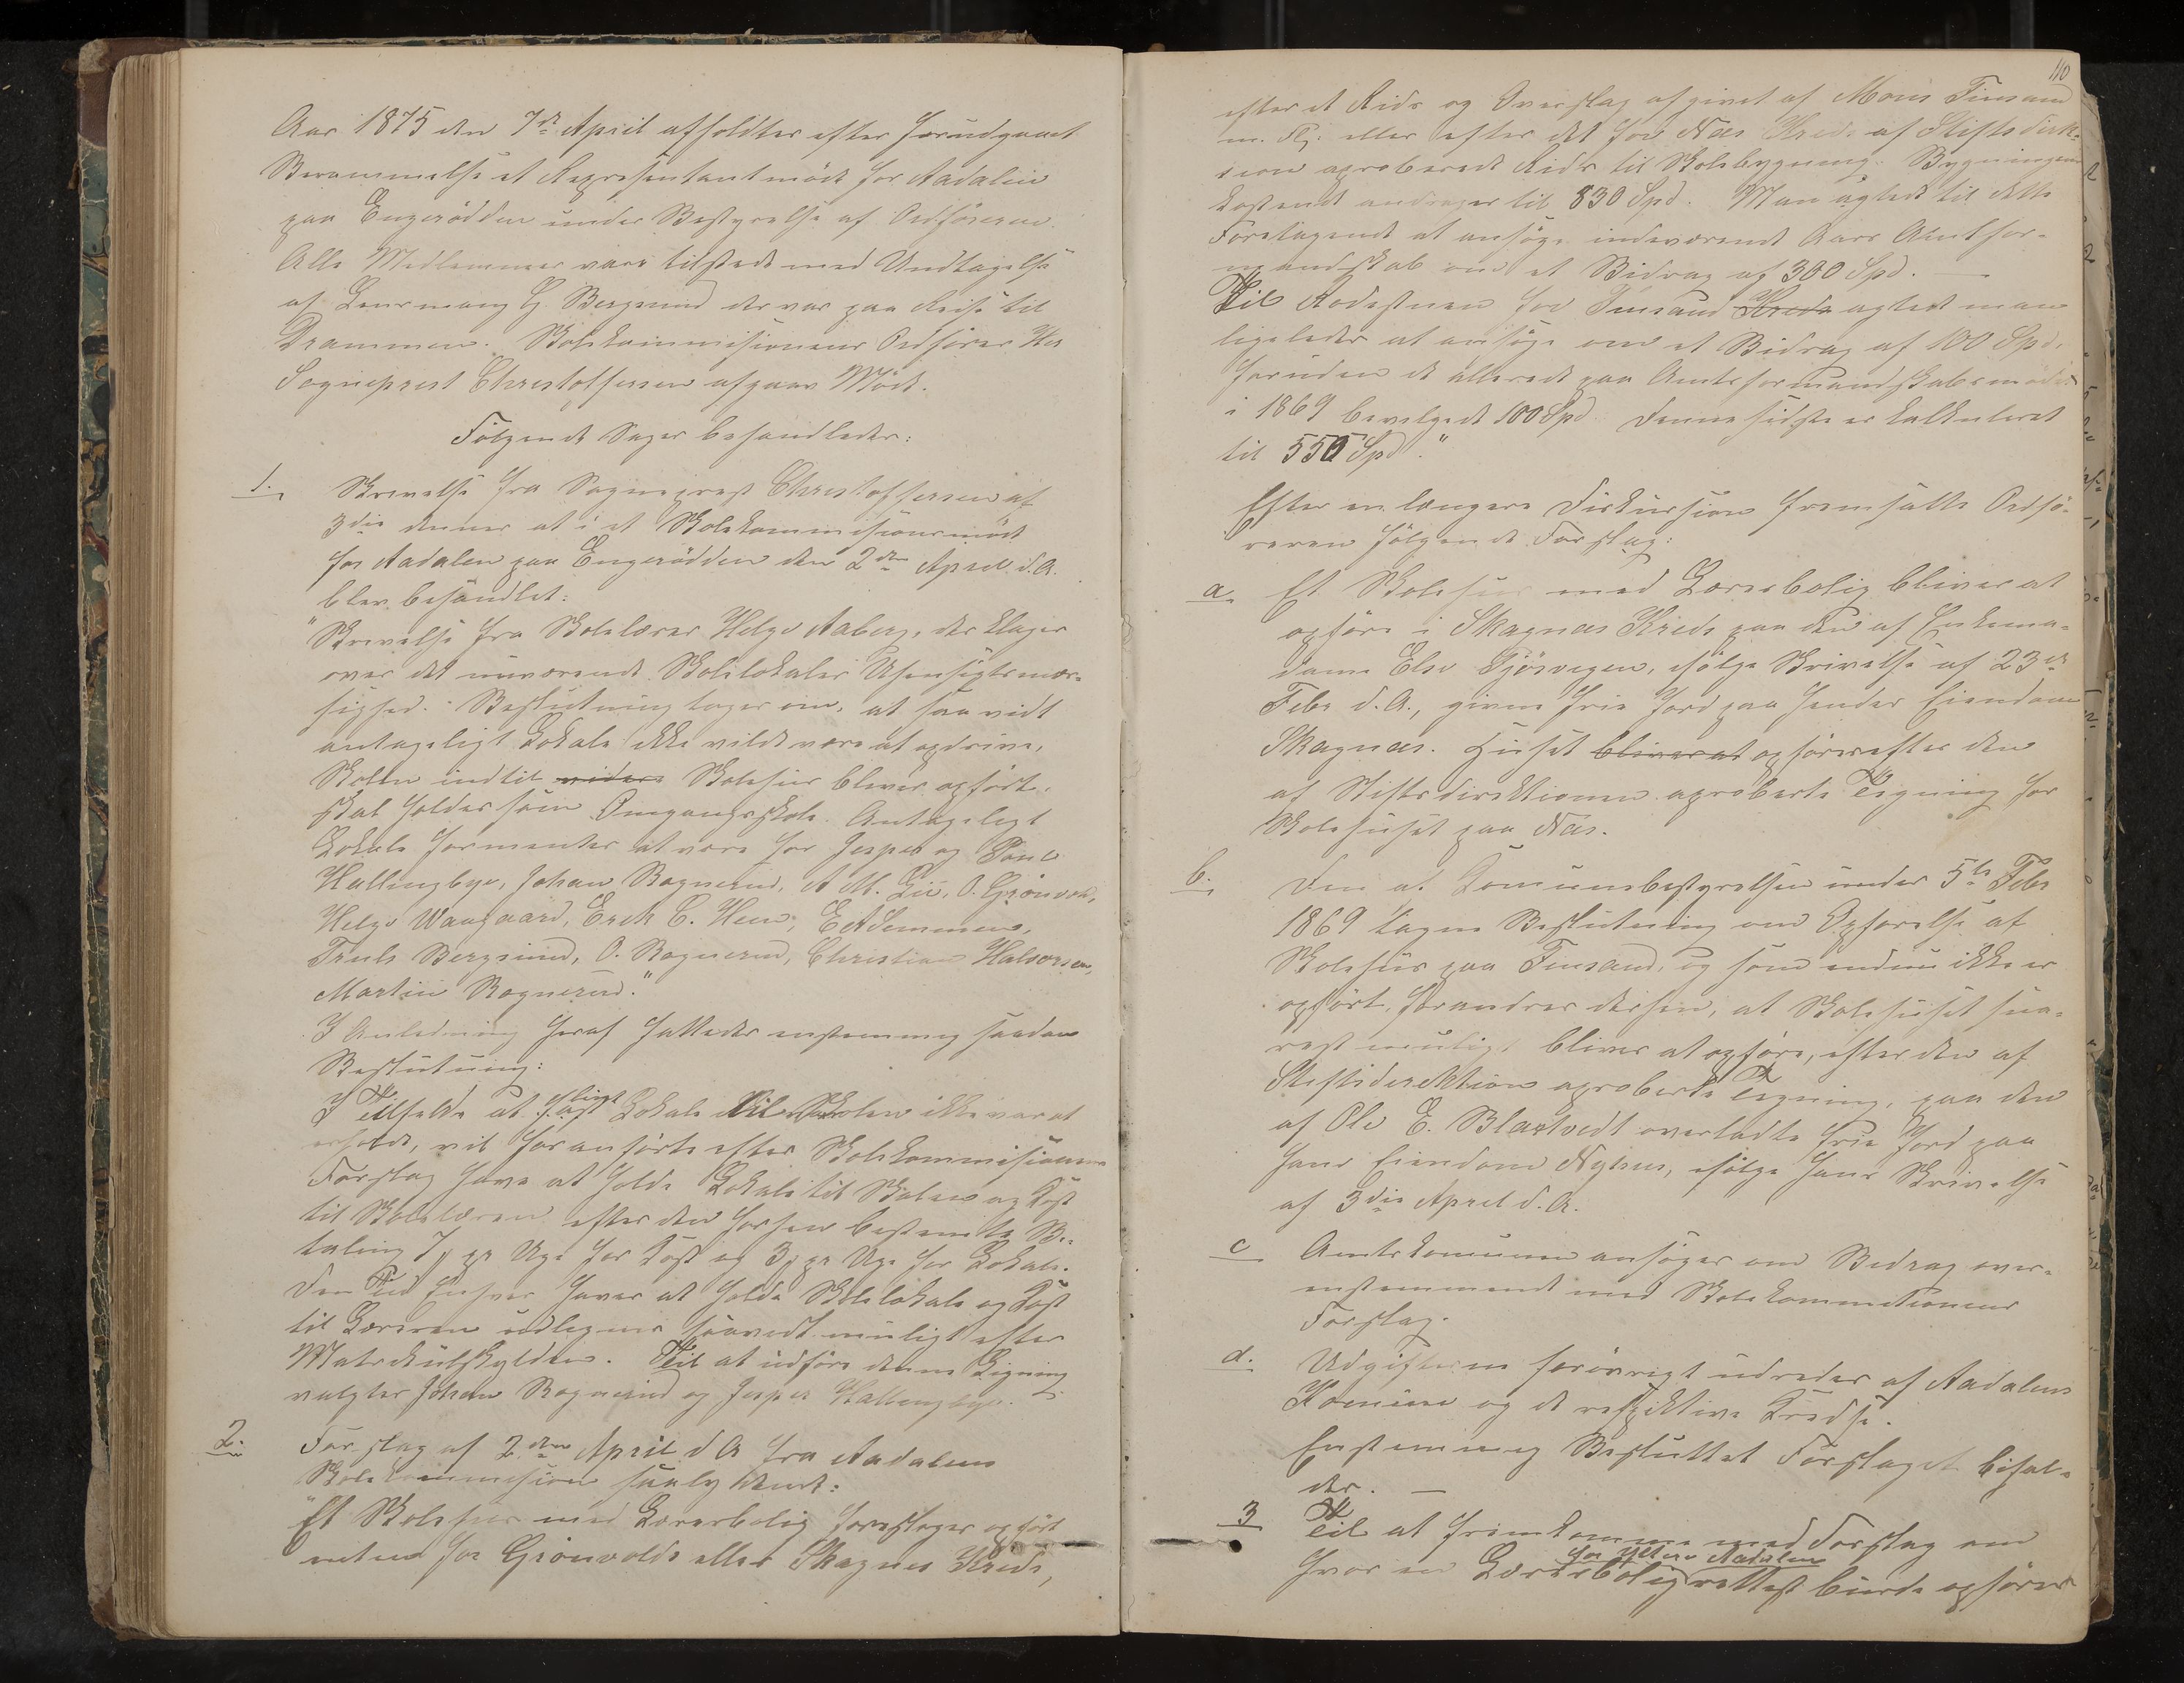 Aar 1875 den 7de April afholdtes efter forudgaaet
Berammelse et Repræsentantmöde for Aadalen
paa Engerödden under Bestyrelse af Ordföreren.
Alle Medlemmer vare tilstede med Undtagelse
af Lensmand G. Bergsund der var paa Reise til
Drammen. Skolekommisionens Ordförer Hr
Sogneprest Christoffersen afgaar Möde.
Fölgende Sager behandledes:
1. Skrivelse fra Sogneprest Christoffersen af
3die dennes at i et Skolekommisionsmöde
for Aadalen paa Engerödden den 2den April d.A.
blev behandlet:
"Skrivelse fra Skolelærer Helge Aaberg, der klager
over det nuværende Skolelokales Uhensigtsmæs-
sighed. Beslutning toges om, at saavidt
antageligt Lokale ikke vilde være at opdrive,
Skolen indtil videre Skolehus bliver opfört,
skal holdes som Omgangsskole. Antageligt
Lokale formentes at være hos Jesper og Paul
Hallingbye, Johan Rognerud, A M. Lie, O. Grönvold,
Helge Waagaard, Erik C. Heen, E A Semmen,
Truls Bergsund, O. Rognerud, Christian Halvorsen,
Martin Rognerud."
I Anledning heraf fattedes enstemmig saadan
Beslutning:
I Tilfælde at fast Lokale til Skolen ikke var at
erholde, vil foranförte efter Skolekommisionens
Forslag have at holde Lokale til Skolen og Kost
til Skolelæreren efter den forhen bestemte Be-
taling 7 pr Uge for Kost og 3 pr Uge for Lokale.
Den Tid Enhver haver at holde Skolelokale og Kost
til Læreren udlignes saavidt muligt efter
Matrikulskylden. Til at udföre denne Ligning
valgtes Johan Rognerud og Jesper Hallingbye.
2. Forslag af 2den April d A fra Aadalens
Skolekommision saalydende:
"Et Skolehus med Lærerbolig foreslages opfört
enten for Grönvolds eller Skagnes Kreds,
110
efter et Rids og Overslag afgivet af Mons Finsand
m. Fl. eller efter det for Næs Kreds af Stiftsdirek-
sion aproberede Rids til Skolebygning. Bygningens
Kostende andrages til 830 Spd. Man agtede til dette
Foretagende at ansöge indeværende Aars Amtsfor-
mandskab om et Bidrag af 300 Spd. —
Til Rodestuen for Finsand Kreds agtede man
ligeledes at ansöge om et Bidrag af 100 Spd,
foruden de allerede paa Amtsformandskabsmödet
i 1869 bevilgede 100 Spd. Denne sidste er kalkuleret
til 550 Spd."
Efter en længere Diskursion fremsatte Ordfö-
reren fölgende Forslag:
a. Et Skolehus med Lærerbolig bliver at
opföre i Skagnæs Kreds paa den af Enkema-
dame Else Gjösvegen, ifölge Skrivelse af 23de
Febr d.A., givne frie Jord paa hendes Eiendom
Skagnæs. Huset bliver at opföres efter den
af Stiftsdirektionen aproberte Tegning for
Skolehuset paa Næs.
b. Den af Komunebestyrelsen under 5te Febr
1869 tagne Beslutning om Opförelse af
Skolehus paa Finsand, og som endnu ikke er
opfört, forandres derhen, at Skolehuset sna-
rest muligt bliver at opföre, efter den af
Stiftsdirektion aproberte Tegning, paa den
af Ole E. Blaatvedt overladte frie Jord paa
hans Eiendom Nyhus, ifölge hans Skrivelse
af 3die April d.A.
c Amtskomunen ansöges om Bidrag over-
enstemmende med Skolekommitionens
Forslag.
d. Udgifterne forövrigt udredes af Aadalens
Komune og de respektive Kredse.
Enstemmig Besluttet Forslaget bifal-
des. —
3 Til at fremkomme med Forslag om
for Ytre Aadalen
hvor en Lærerbolig rettest burde opföres